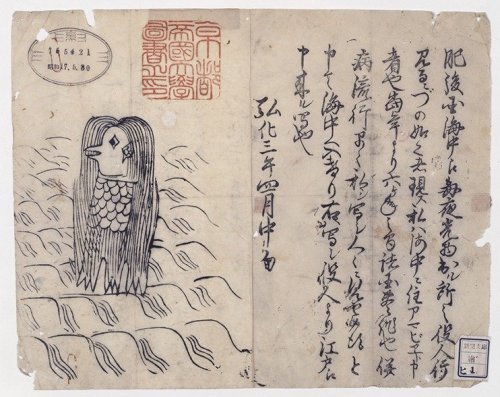 肥後国海中え毎夜光物出ル所之役人行
見るニづの如く之者現ス私ハ海中ニ住アマビヱト申
者也当年より六ヶ年之間諸国豊作也併
病流行早々私ヲ写シ人々ニ見せ候得と
申て海中へ入けり右写シ役人より江戸え
申来ル写也
弘化三年四月中旬
京都
帝國大學
圖書之印
165421
昭和17.5.30